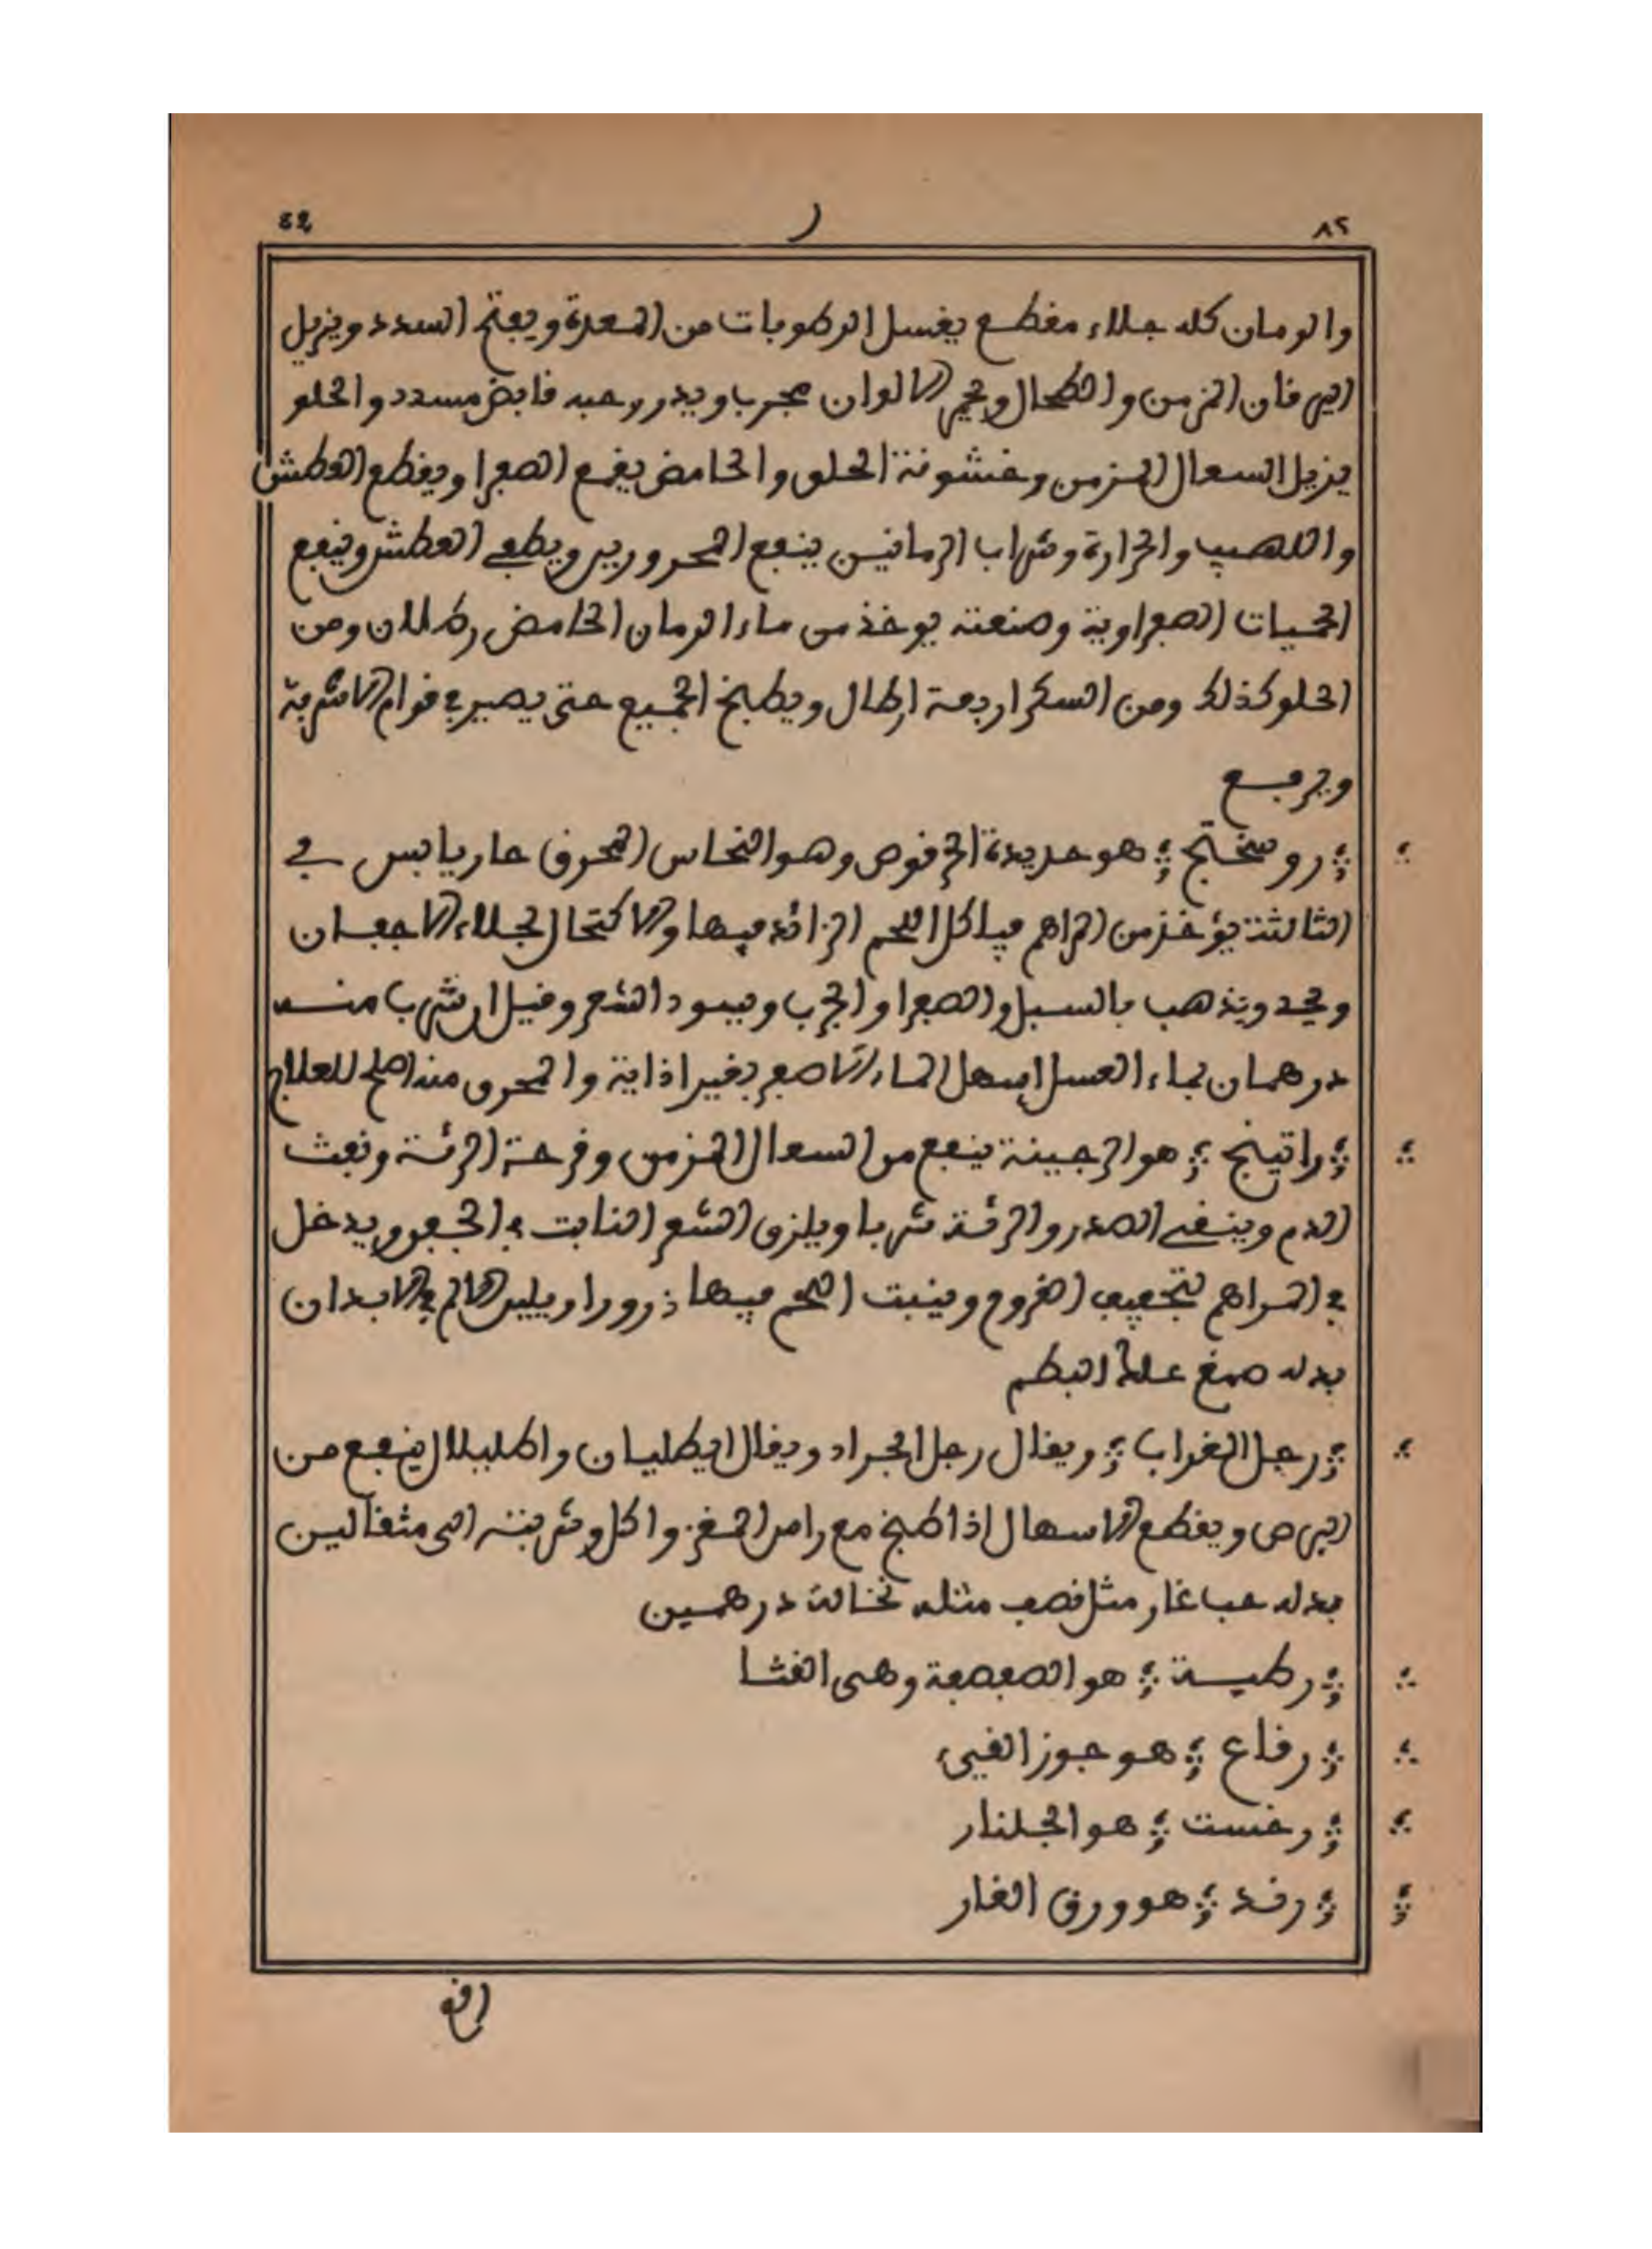 ٨٢ ر ٤٩
والرمان كله جلاء مقطع يغسل الرطوبات من المعدة ويفتح السدد ويزيل
اليرقان المزمن والطحال ويحمر الالوان مجرب ويدر وحبه قابض مسدد والحلو
يزيل السعال المزمن وخشونة الحلق والحامض يقمع الصفرا ويقطع العطش
واللهيب والحرارة وشراب الرمانين ينفع المحرورين ويطفي العطش وينفع
الحميات الصفراوية وصنعته يوخذ من ماء الرمان الحامض رطلان ومن
الحلو كذلك ومن السكر اربعة ارطال ويطبخ الجميع حتى يصير في قوام الاشربة
ويرفع
؞ روسختج ؞ هو حديدة الحرقوص وهو النحاس المحرق حار يابس في
الثالثة يؤخذ من المراهم فياكل اللحم الزائد فيها والاكتحال لجلاء الاجفان
ويحد ويذهب بالسبل والصفرا والجرب ويسود الشعر وقيل ان شرب منه
درهمان بماء العسل اسهل الماء الاصفر بغير اذاية والمحرق منه اصلح للعلاج
؞ راتينج ؞ هو الرجينة ينفع من السعال المزمن وقرحة الرئة ونفث
الدم وينقي الصدر والرئة شربا ويلزق الشعر النابت في الجفن ويدخل
في المراهم لتجفيف القروح وينبت اللحم فيها ذرورا ويلين الالم في الابدان
بدله صمغ علك البطم
؞ رجل الغراب ؞ ويقال رجل الجراد ويقال ايطليان واطليلال ينفع من
البرص ويقطع الاسهال اذا طبخ مع راس المغز واكل وشربته الى مثقالين
بدله حب غار مثل نصف مثله نخالة درهمين
؞ رطبة ؞ هو الصفصفة وهى القثا
؞ رقاع ؞ هو جوز القيىء
؞ رخست ؞ هو الجلنار
؞ رند ؞ هو ورق الغار